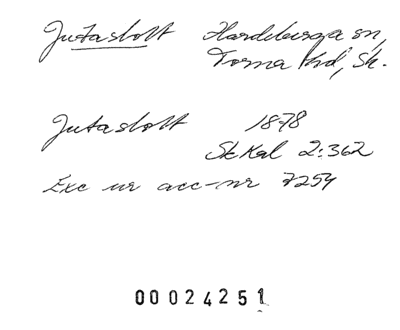 Jutaslott Hardeberga sn,
Torna hd, Sk.
Jutaslott 1878
SkKal 2:362
Exc ur acc-nr 7254
00024251